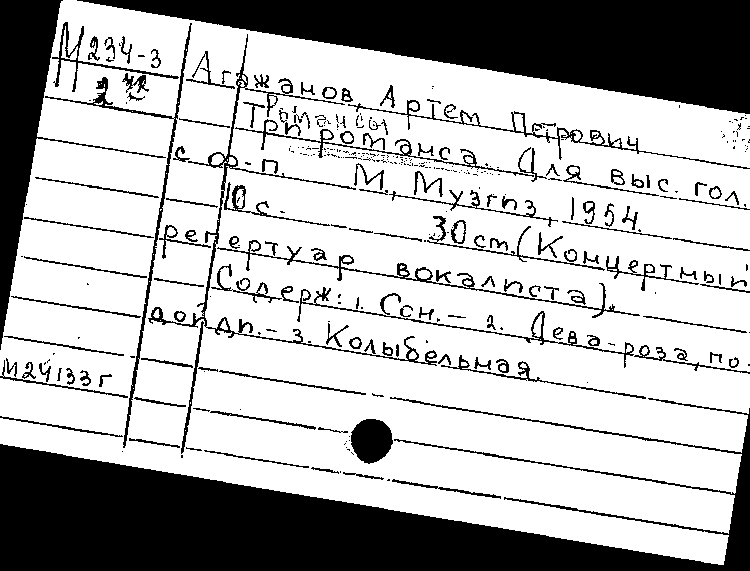 М234-3
2
Агажанов, Артем Петрович
Романсы
Три романса. Для выс. гол.
с ф-п. М., Музгиз, 1954.
10 с. 30 см. (Концертный
репертуар вокалиста).
Содерж: 1. Сон. – 2. Дева-роза, по-
дойди. – 3. Колыбельная.
М24133г